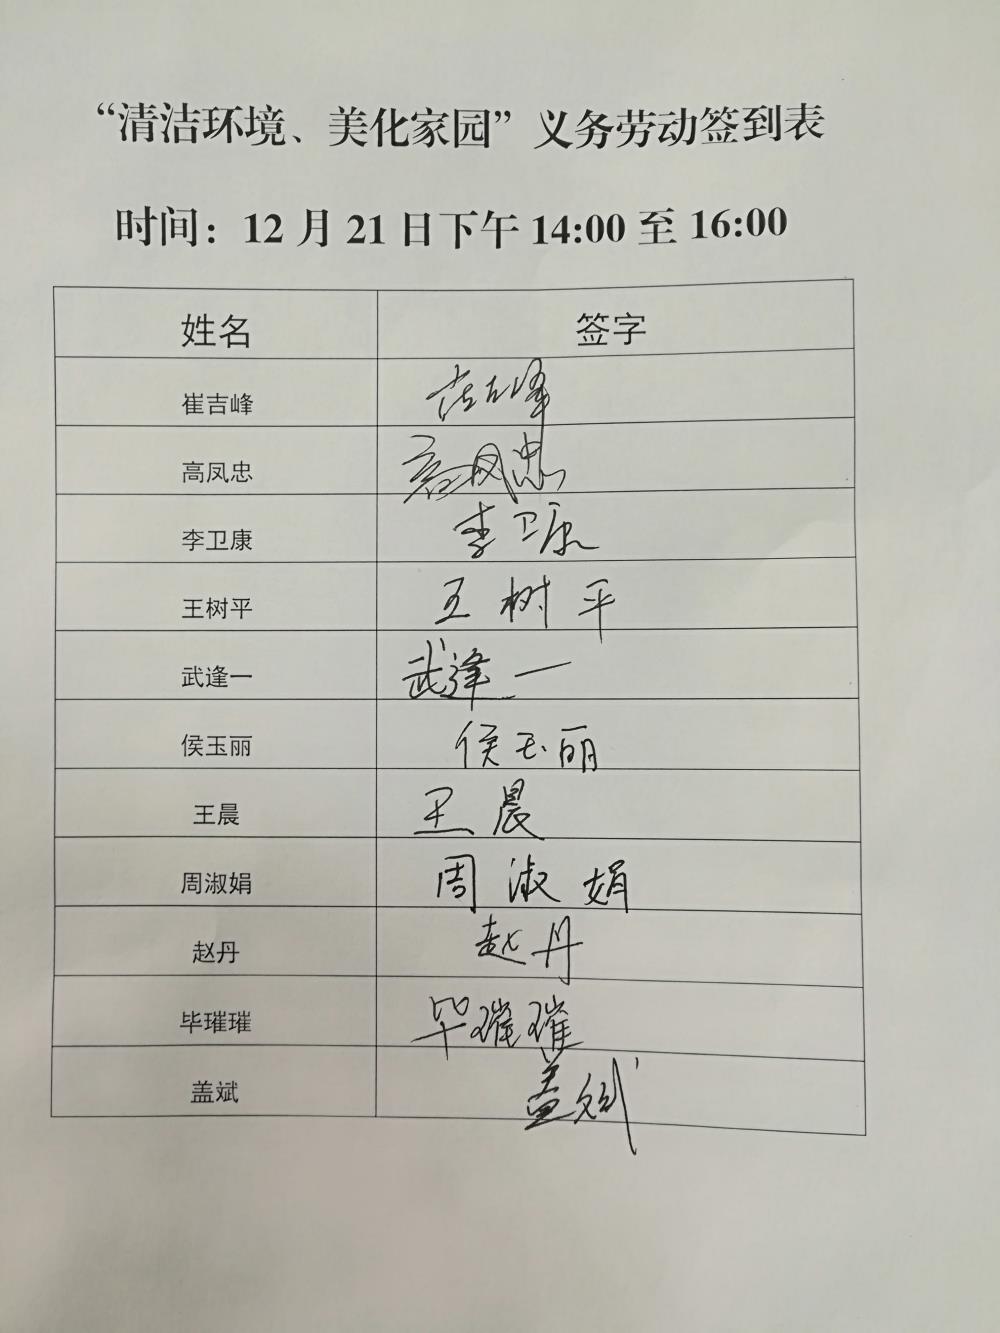 “清洁环境、美化家园”义务劳动签到表
时间：12月21日下午14:00至16:00
姓名 签字
崔吉峰 崔吉峰
高凤忠 高凤忠
李卫康 李卫康
王树平 王树平
武逢一 武逢一
侯玉丽 侯玉丽
王晨 王晨
周淑娟 周淑娟
赵丹 赵丹
毕璀璀 毕璀璀
盖斌 盖斌